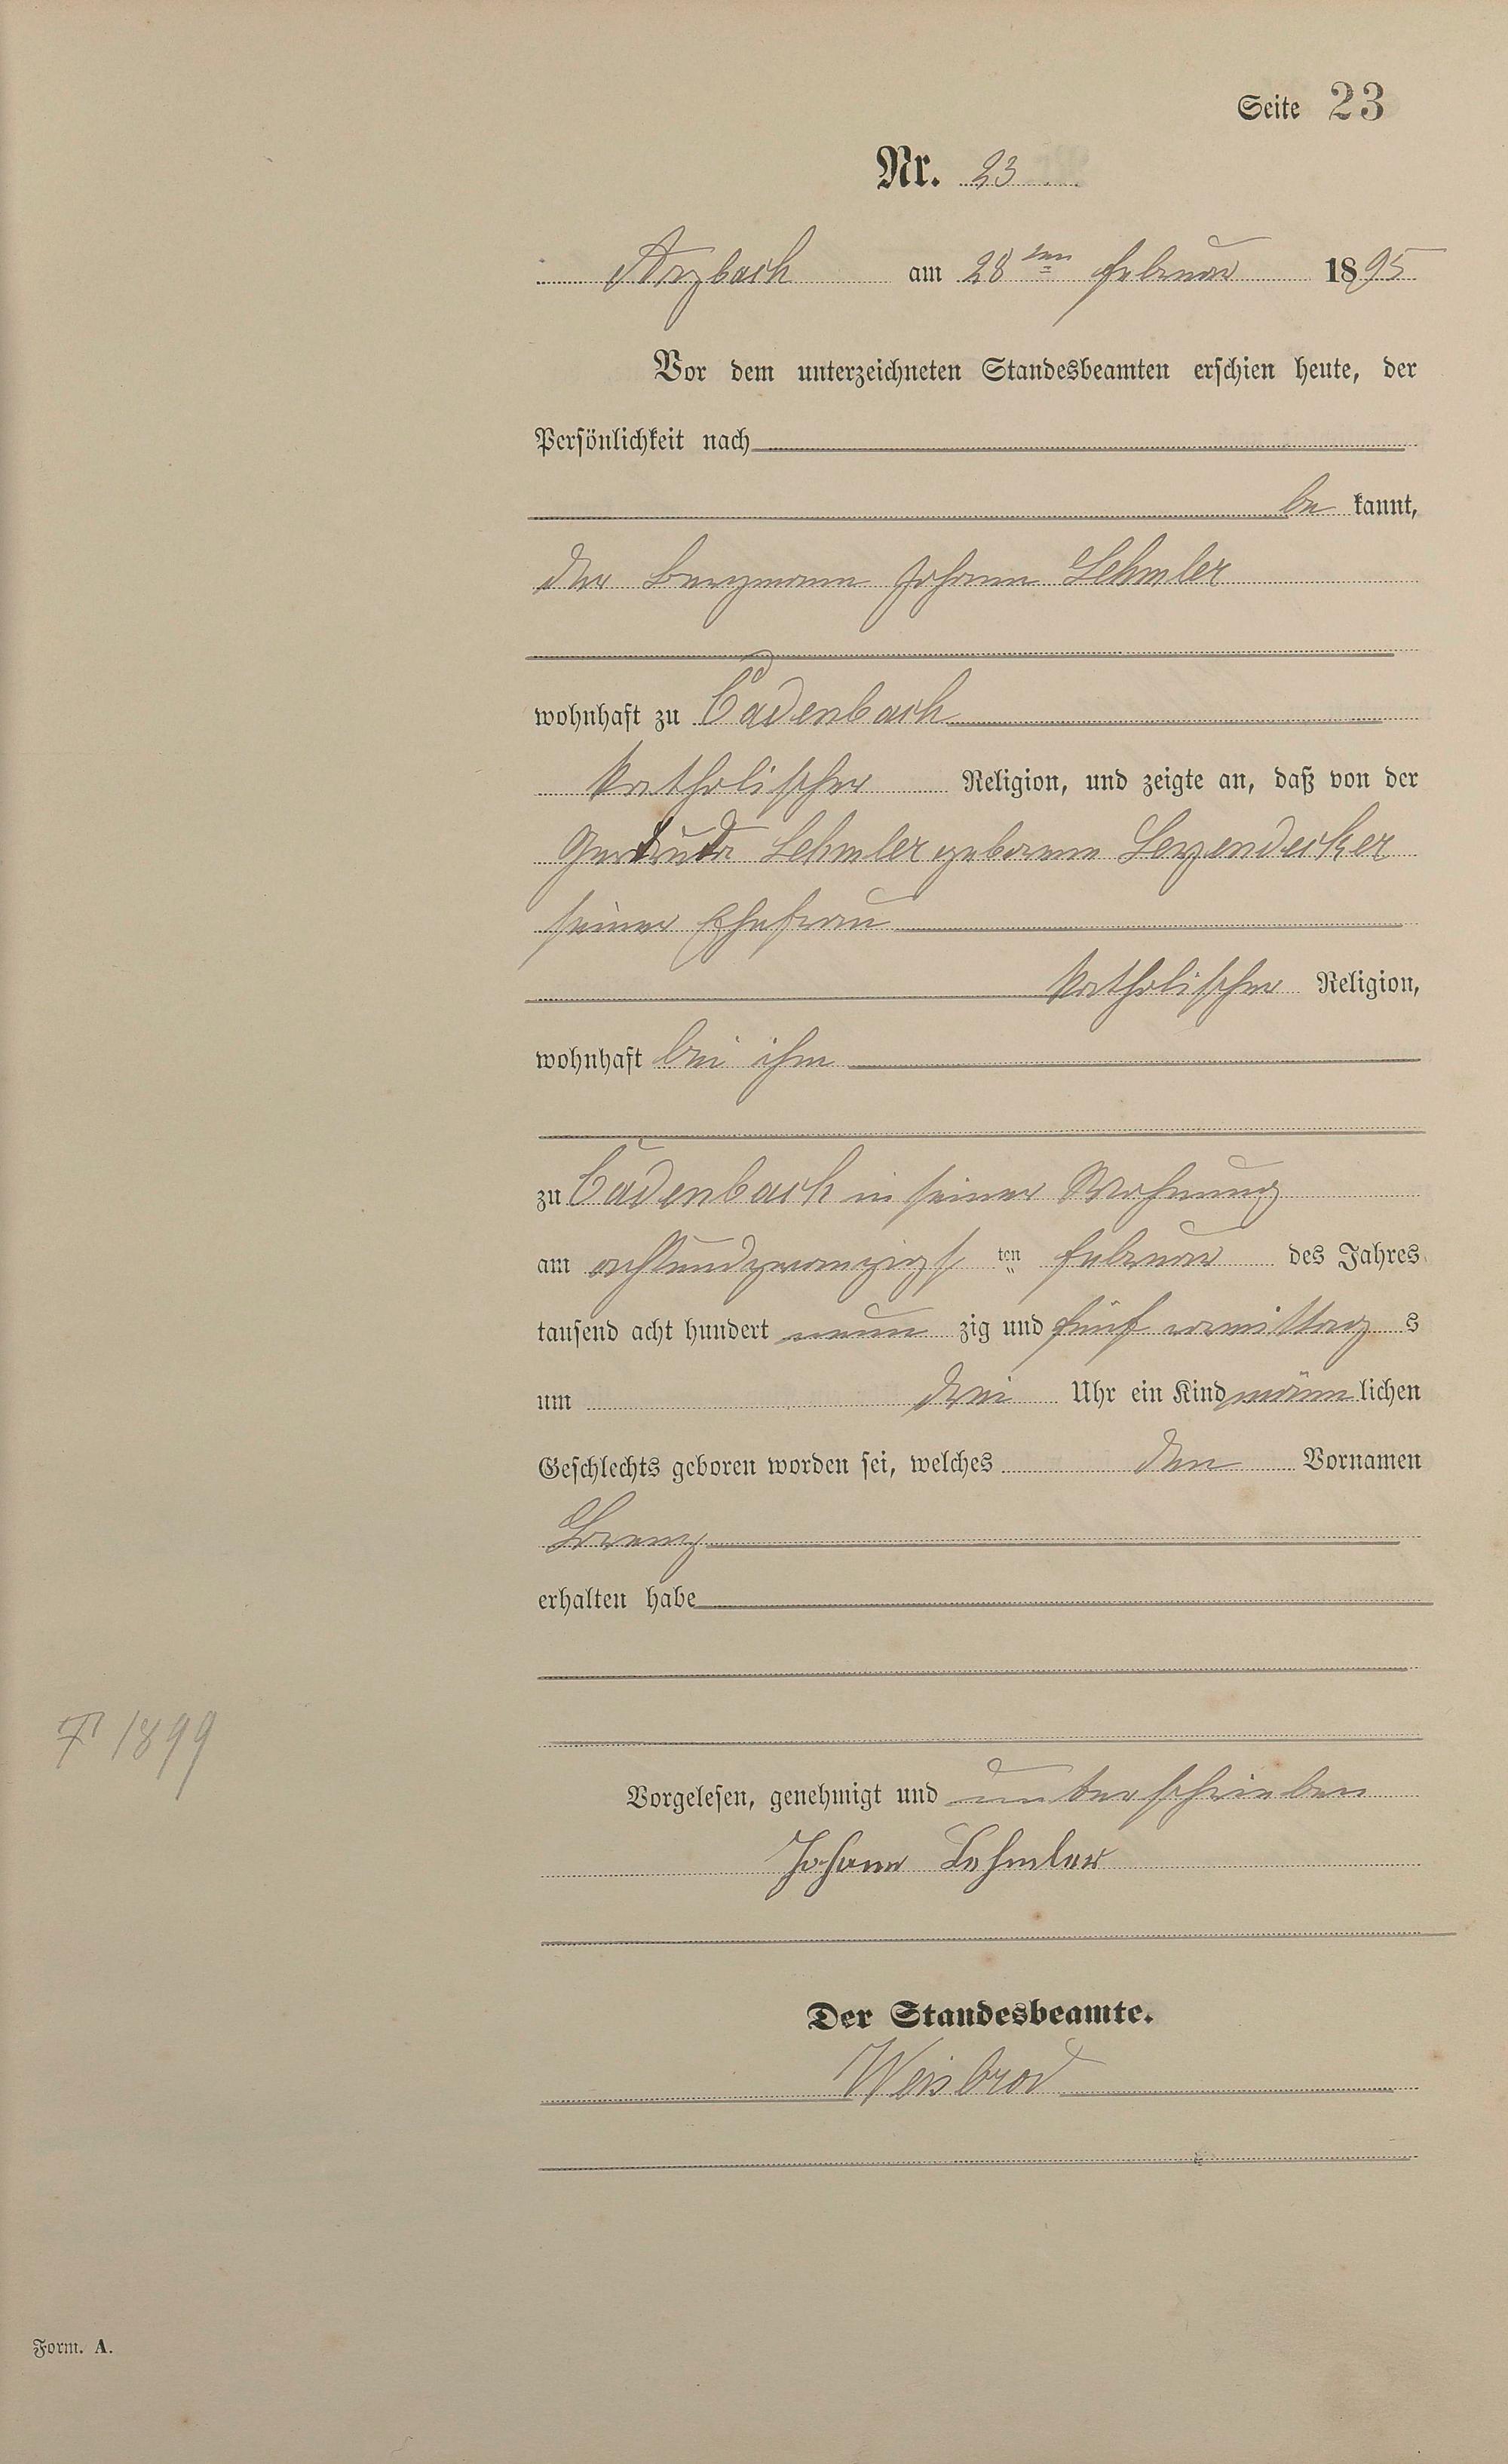 Seite 23
Nr. 23
Arzbach am 28ten Februar 1895
Vor dem unterzeichneten Standesbeamten erschien heute, der
Persönlichkeit nach
be kannt,
der Bergmann Johann Lehmler
wohnhaft zu Cadenbach
katholischer Religion, und zeigte an, daß von der
Gertruda Lehmler geborene Leyendecker
seiner Ehefrau
katholischer Religion,
wohnhaft bei ihm
zu Cadenbach in seiner Wohnung
am achtundzwanzigs ten Februar des Jahres
tausend acht hundert neun zig und fünf vormittag s
um drei Uhr ein Kind männ lichen
Geschlechts geboren worden sei, welches den Vornamen
Lorenz
erhalten habe
1899
Vorgelesen, genehmigt und unterschrieben
Johann Lehmler
Der Standesbeamte.
Weisbrod
Form. A.